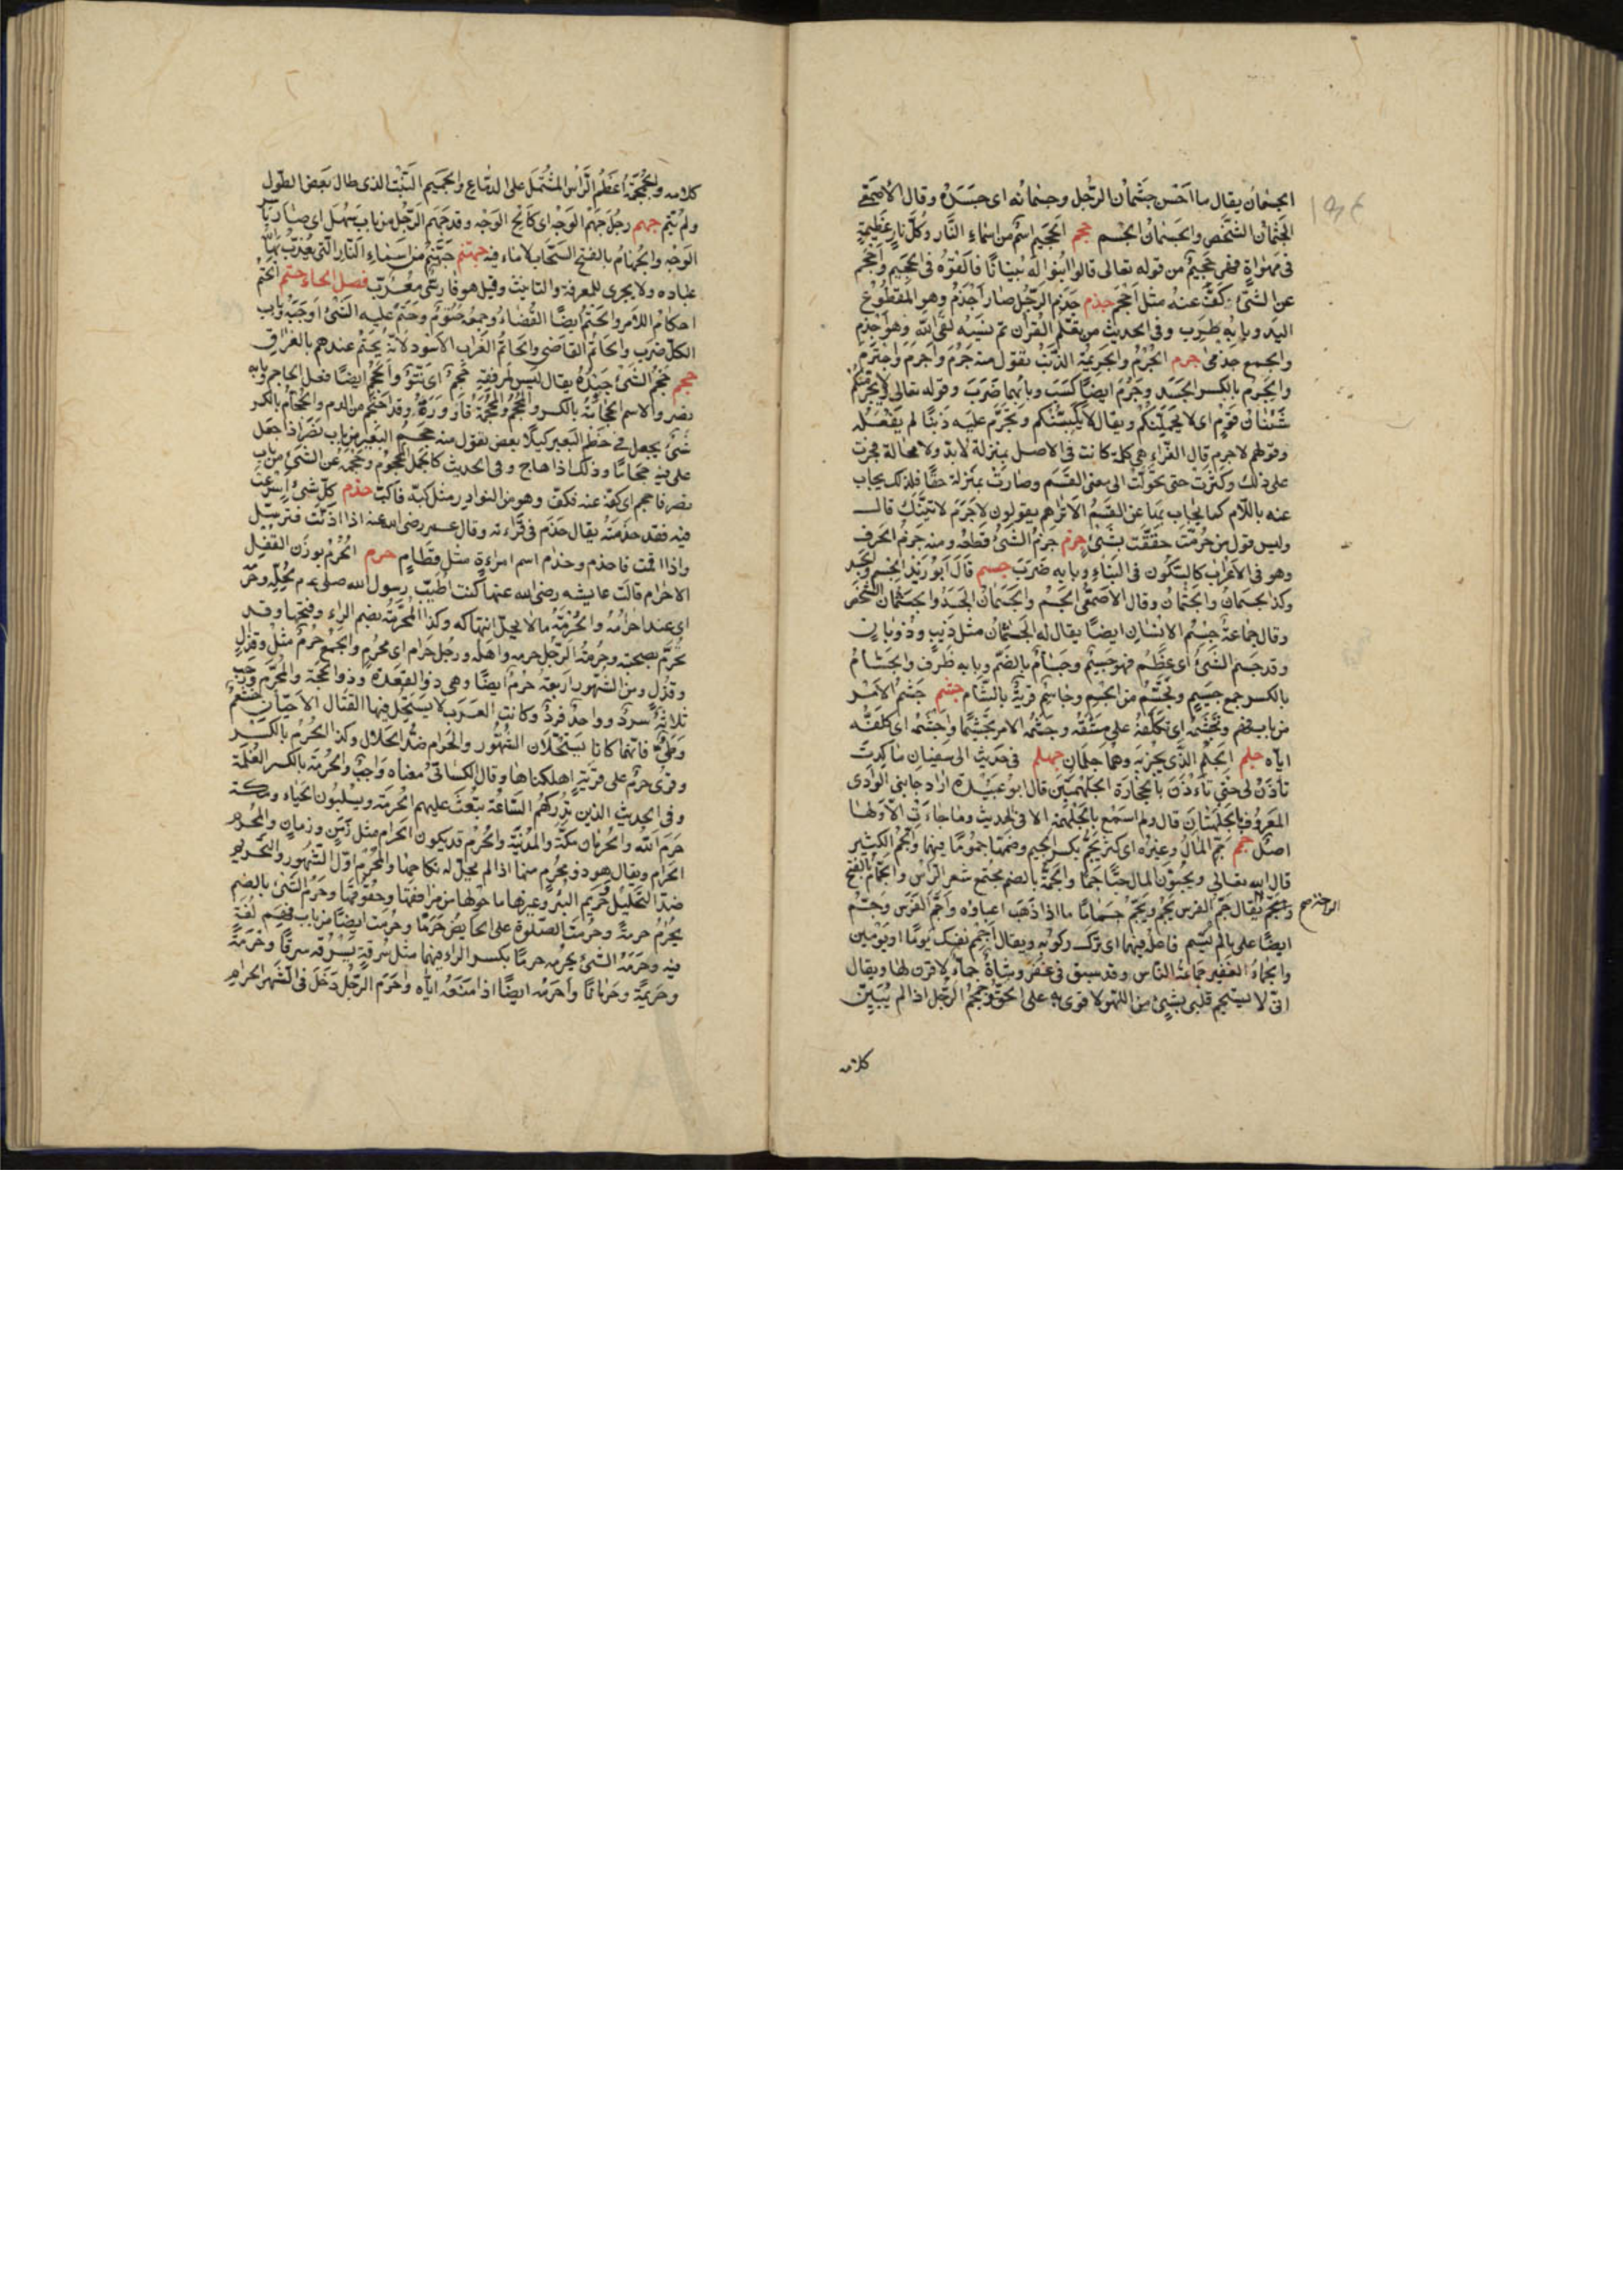 الجسمان يقال ما احسن جثمان الرجل وجسمانه اى جسده وقال الاصمعى
الجثمان الشخص والجسمان الجسم جحم الجحيم اسم من اسماء النار وكل نار عظيمة
فى مهواة فهى جحيم من قوله تعالى قالوا ابنوا له بنيانا فالقوه فى الجحيم واجحم
عن الشئ كف عنه مثل احجم جذم جذم الرجل صار اجذم وهو المقطوع
اليد وبابه طرب وفى الحديث من تعلم القران ثم نسيه لقى الله وهو اجذم
والجمع جذمى جرم الجرم والجريمة الذنب تقول منه جرم واجرم واجترم
والجرم بالكسر الجسد وجرم ايضا كسب وبابهما ضرب وقوله تعالى لا يجرمنكم
شنئان قوم اى لا يحملنكم ويقال لا يكسبنكم وتجرم عليه ذنبا لم يفعله
وقولهم لا جرم قال الفراء هى كلمة كانت فى الاصل بمنزلة لا بد ولا محالة فجرت
على ذلك وكثرت حتى تحولت الى معنى القسم وصارت بمنزلة حقا فلذلك يجاب
عنه باللام كما يجاب بها عن القسم الا تراهم يقولون لا جرم لاتينك قال
وليس قول من جرمت حققت بشئ جزم جزم الشئ قطعه ومنه جزم الحرف
وهو فى الاعراب كالسكون فى البناء وبابه ضرب جسم قال ابو زيد الجسم الجسد
وكذا الجسمان والجثمان وقال الاصمعى الجسم والجسمان الجسد والجثمان الشخص
وقال جماعة جسم الانسان ايضا يقال له الجثمان مثل ذئب وذوبان
وقد جسم الشئ اى عظم فهو جسيم وجسام بالضم وبابه ظرف والجسام
بالكسر جمع جسيم وتجسم من الجسم وجاسم قرية بالشام جشم جشم الامر
من باب فهم وتجشمه اى تكلفه على مشقة وجشمه الامر تجشيما واجشمه اى كلفه
اياه جلم الجلم الذى يجز به وهما جلمان جلهم فى حديث ابى سفيان ما كدت
تأذن لى حتى تأذن لحجارة الجلهمتين قال ابو عبيدة اراد جانبى الوادى
المعروف الجلهتان قال ولم اسمع بالجلهمة الا فى الحديث وما جاءت الا ولها
اصل جمم جم المال وغيره اى كثر يجم بكسر الجيم وضمها جموما فيهما والجم الكثير
قال الله تعالى ويحبون المال حبا جما والجمة بالضم مجتمع شعر الراس والجمام بالفتح
يقال جم الفرس يجم ويجم جماما اذا ذهب اعياؤه واجم الفرس وجم
ايضا على ما لم يسم فاعله فيهما اى ترك ركوبه ويقال اجمم نفسك يوما او يومين
والجماء الغفير جماعة الناس وقد سبق فى غفر وشاة جماء لا قرن لها ويقال
انى لاستجم قلبى بشئ من اللهو لاقوى به على الحق وجمجم الرجل اذا لم يبين
كلامه
كلامه والجمجمة عظم الراس المشتمل على الدماغ والجميم النبت الذى طال بعض الطول
ولم يتم جهم رجل جهم الوجه اى كالح الوجه وقد جهم الرجل من باب سهل اى صار
الوجه والجهام بالفتح السحاب لا ماء فيه جهنم جهنم من اسماء النار التى يعذب بها الله
عباده ولا يجرى للمعرفة والتانيث وقيل هو فارسى معرب فصل الحاء حتم الحتم
احكام الامر والحتم ايضا القضاء وجمعه حتوم وحتم عليه الشئ اوجبه وباب
الكل ضرب والحاتم القاضى والحاتم الغراب الاسود لانه يحتم عندهم بالفراق
حجم حجم الشئ حيده يقال ليس لمرفقه حجم اى نتوء والحجم ايضا فعل الحاجم وبابه
نصر والاسم الحجامة بالكسر والمحجم والمحجمة قارورته وقد احتجم من الدم والحجام بالكسر
شئ يجعل فى خطم البعير كيلا يعض تقول منه حجم البعير من باب نصر اذا جعل
على فيه حجاما وذلك اذا هاج وفى الحديث كالجمل المحجوم وحجمه عن الشئ من باب
نصر فاحجم اى كفه عنه فكف وهو من النوادر مثل كبه فاكب حذم كل شئ اسرعت
فيه فقد حذمته يقال حذم فى قراءته وقال عمر رضى الله عنه اذا اذنت فترسل
واذا اقمت فاحذم وحذام اسم امراءة مثل قطام حرم الحرم بوزن القفل
الاحرام قالت عايشه رضى الله عنها كنت اطيب رسول الله صلى لحله وحرمه
اى عند احرامه والحرمة ما لا يحل انتهاكه وكذا المحرمة بضم الراء وفتحها وقد
تحرم بصحبته وحرمة الرجل حرمه واهله ورجل حرام اى محرم والجمع حرم مثل قذال
وقذل ومن الشهور اربعة حرم ايضا وهى ذو القعدة وذو الحجة والمحرم ورجب
ثلاثة سرد وواحد فرد وكانت العرب لا يستحل فيها القتال الا حيان خثعم
وطئ فانهما كانا يستحلان الشهور والحرام ضد الحلال وكذا الحرم بالكسر
وقرئ حرم على قرية اهلكناها وقال الكسائى معناه واجب والحرمة بالكسر الغلمة
وفى الحديث الذين تدركهم الساعة تبعث عليهم الحرمة ويسلبون الحياء ومكة
حرم الله والحرمان مكة والمدينة والحرم قد يكون الحرام مثل زمن وزمان والمحرم
الحرام ويقال هو ذو محرم منها اذا لم يحل له نكاحها والمحرم اول الشهور والتحريم
ضد التحليل وحريم البئر وغيرها ما حولها من مرافقها وحقوقها وحرم الشئ بالضم
يحرم حرمة وحرمت الصلوة على الحايض حرما وحرمت ايضا من باب فهم لغة
فيه وحرمه الشئ يحرمه حرما بكسر الراء فيهما مثل سرقه يسرقه سرقا وحرمة
وحريمة وحرمانا واحرمه ايضا اذا منعه اياه واحرم الرجل دخل فى الشهر الحرام